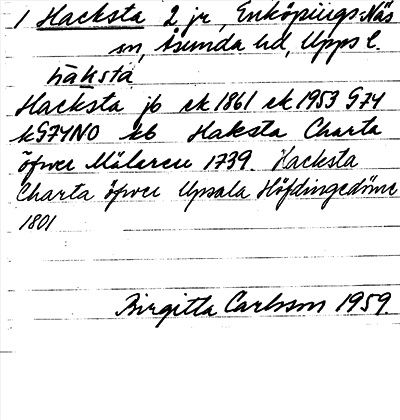 1 Hacksta 2 jr, Enköpings-Näs
sn, Åsunda hd, Upps l.
hàksta
Hacksta jb ek 1861 ek 1953 G74
kG74NO kb Haksta Charta
öfwer Mälaren 1739. Hacksta
Charta öfwer Upsala Höfdingedöme
1801
Birgitta Carlsson 1959.